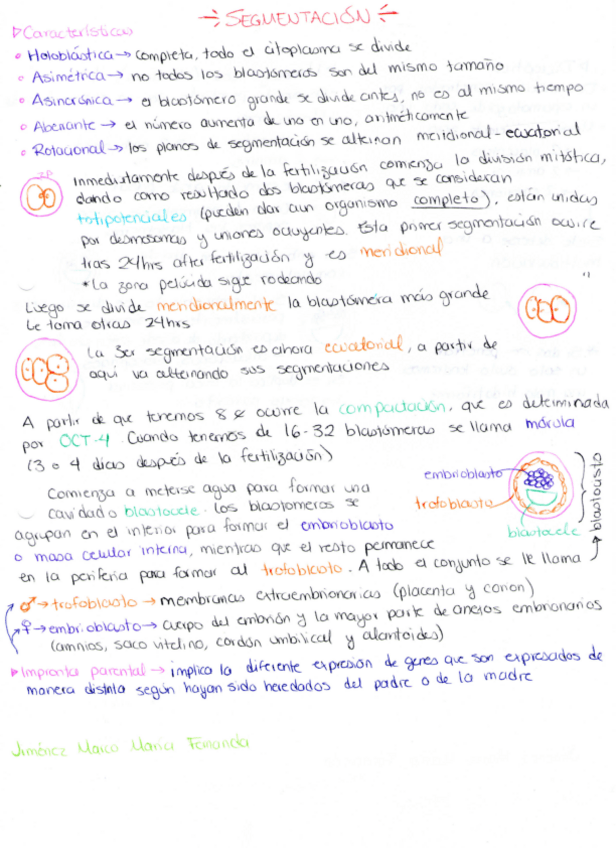 SEGMENTACIÓN
Características
Holoblástica → completa, todo el citoplasma se divide
Asimétrica → no todos los blastómeros son del mismo tamaño
Asincrónica → el blastómero grande se divide antes, no es al mismo tiempo
Aberrante → el número aumenta de uno en uno, aritméticamente
Rotacional → los planos de segmentación se alternan meridional-ecuatorial
ZP
Inmediatamente después de la fertilización comienza la división mitótica,
dando como resultado dos blastómeras que se consideran
totipotenciales (pueden dar a un organismo completo), están unidas
por desmosomas y uniones ocluyentes. Esta primer segmentación ocurre
tras 24hrs after fertilización y es meridional
*La zona pelúcida sigue rodeando
Luego se divide meridionalmente la blastómera más grande
Le toma otras 24hrs
La 3er segmentación es ahora ecuatorial, a partir de
aquí va alternando sus segmentaciones
A partir de que tenemos 8 ocurre la compactación, que es determinada
por OCT-4. Cuando tenemos de 16-32 blastómeras se llama mórula
(3 o 4 días después de la fertilización)
Comienza a meterse agua para formar una
cavidad o blastocele. Los blastomeros se
agrupan en el interior para formar el embrioblasto
o masa celular interna, mientras que el resto permanece
en la periferia para formar al trofoblasto. A todo el conjunto se le llama
embrioblasto
trofoblasto
blastocele
blastocisto
♂ → trofoblasto → membranas extraembrionarias (placenta y corion)
♀ → embrioblasto → cuerpo del embrión y la mayor parte de anexos embrionarios
(amnios, saco vitelino, cordón umbilical y alantoides)
Impronta parental → implica la diferente expresión de genes que son expresados de
manera distinta según hayan sido heredados del padre o de la madre
Jiménez Marco María Fernanda